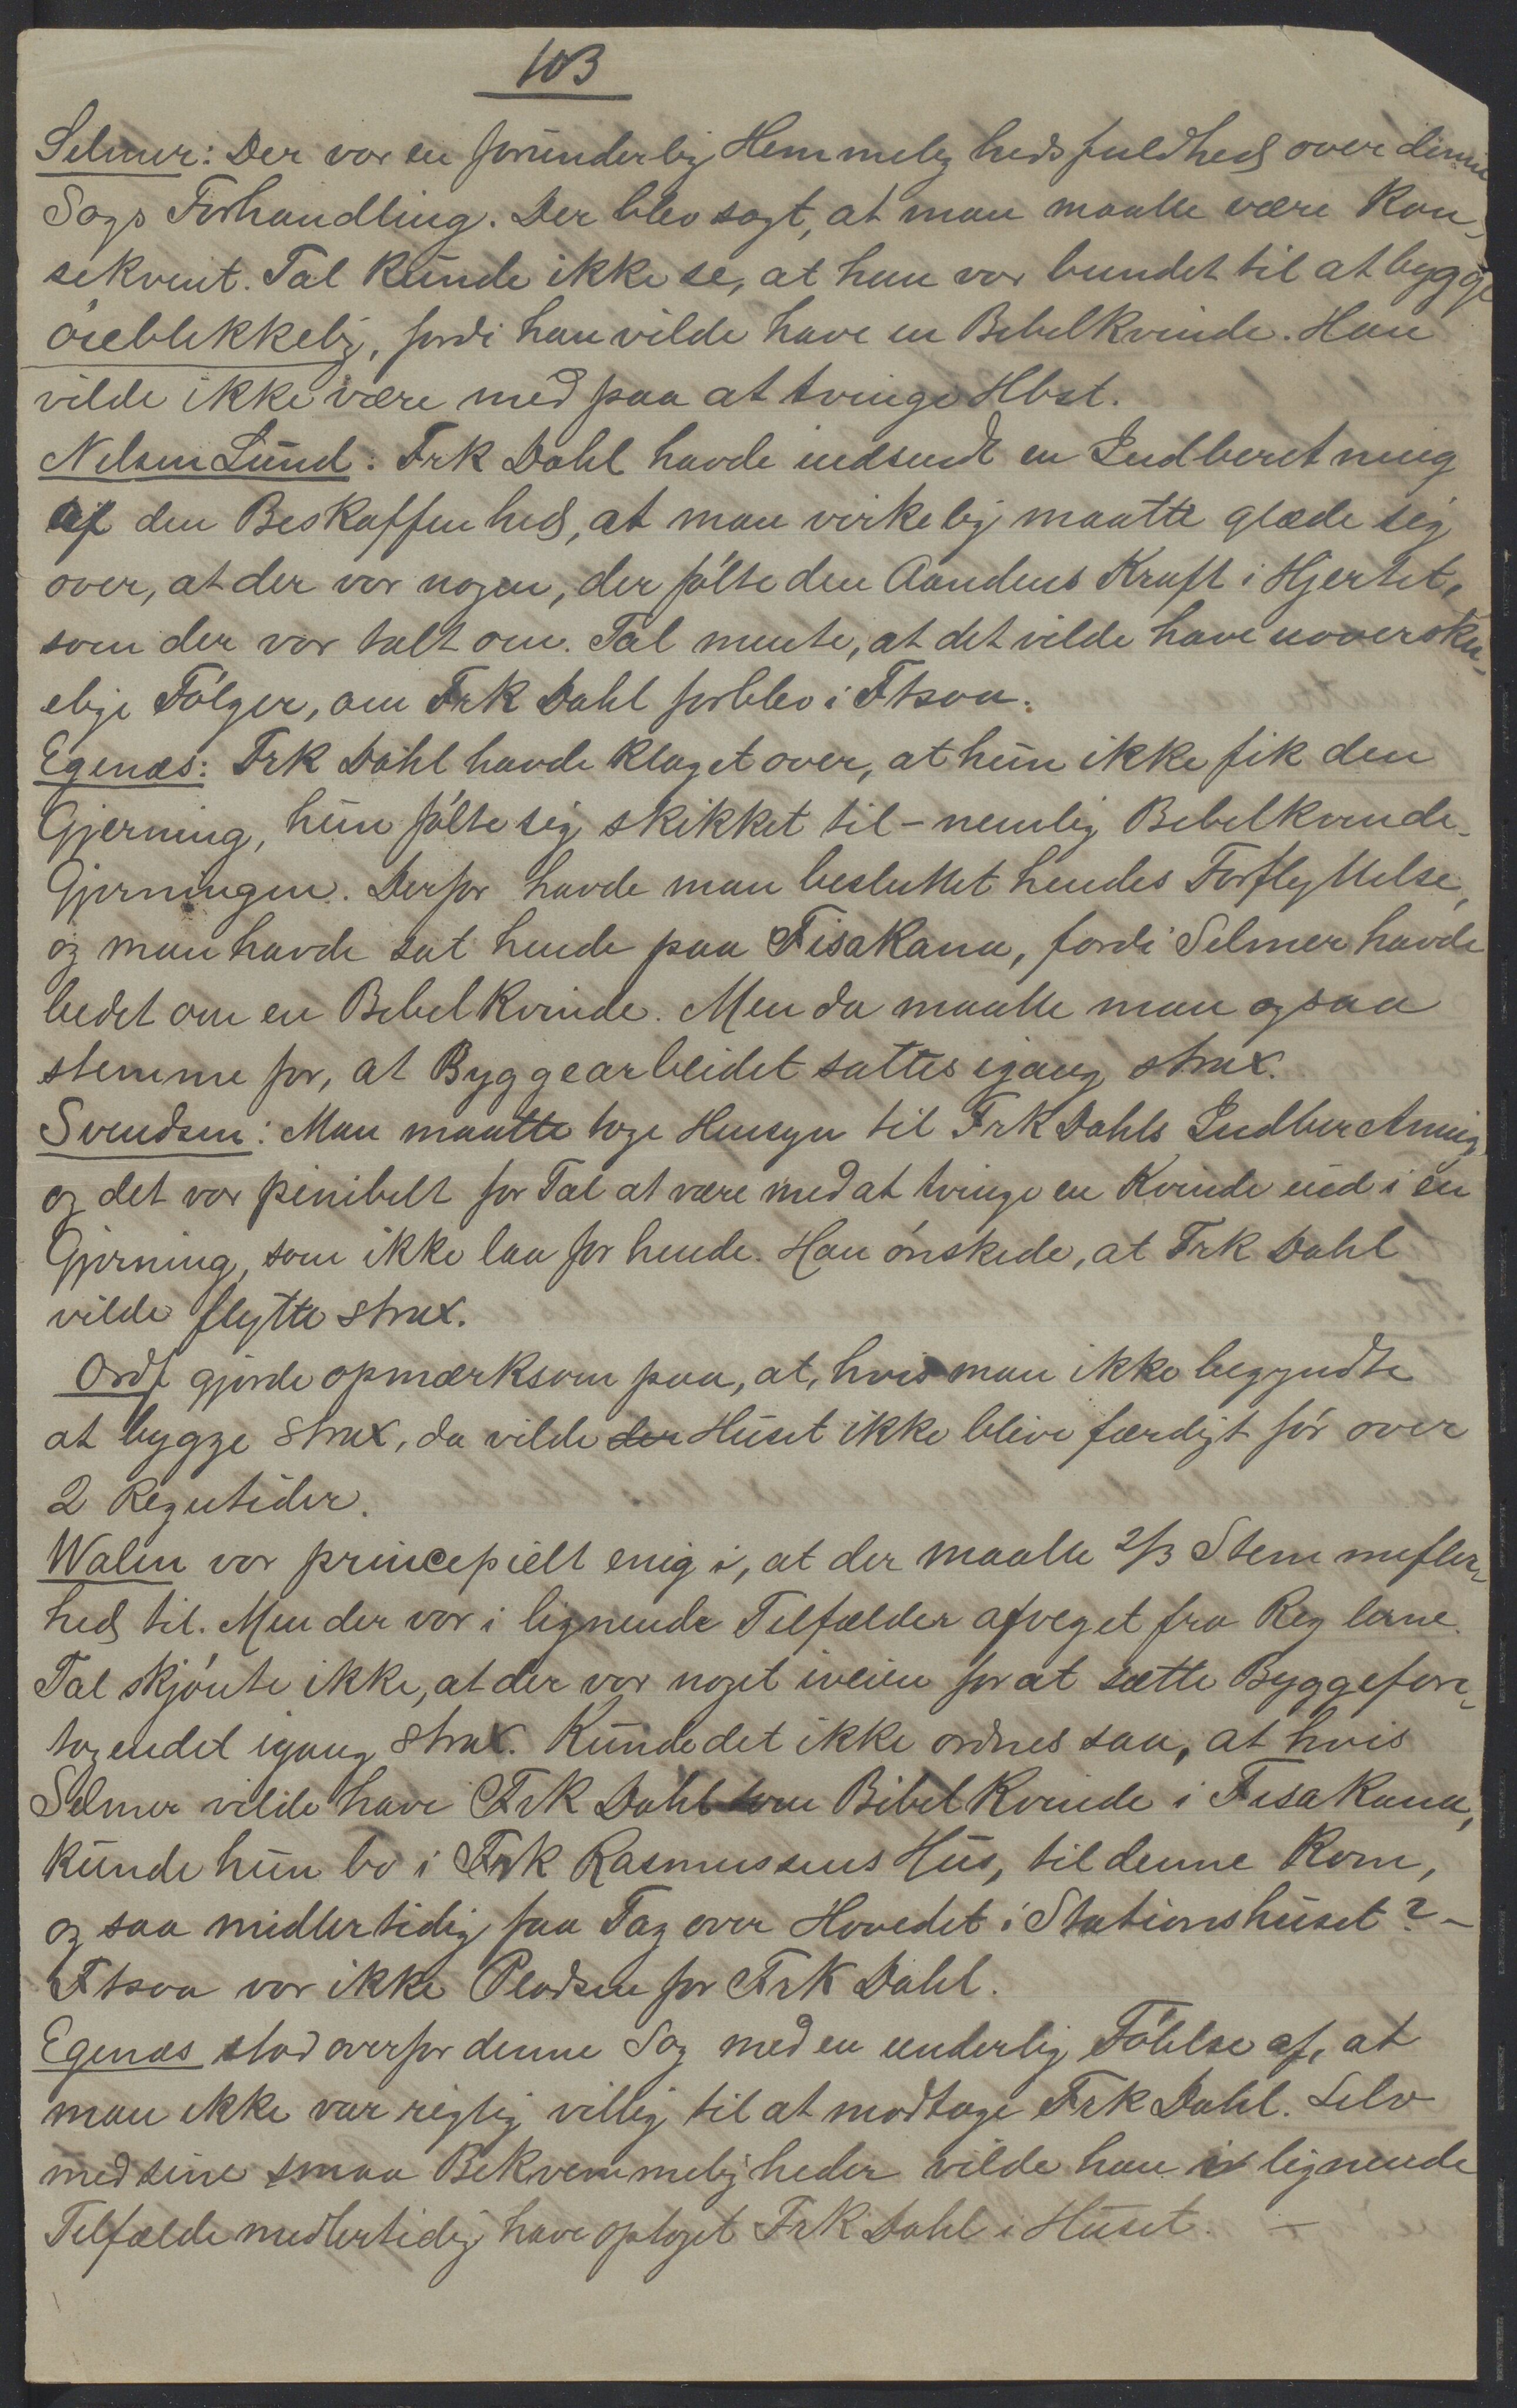 103
Selmer: Der var en forunderlig Hemmelighedsfuldhed over denne
Sags Forhandling. Der blev sagt, at man maatte være Kon-
sekvent. Tal Kunde ikke se, at han var bundet til at bygge
öieblikkelig, fordi han vilde have en Bibelkvinde. Han
vilde ikke være med paa at tvinge Hbst.
Nilsen Lund: Frk Dahl havde indsendt en Indberetning
af den Beskaffenhed, at man virkelig maatte glæde sig
over, at der var nogen, der fölte den Aandens Kraft i Hjertet,
som der var talt om. Tal mente, at det vilde have uoversku-
elige Fölger, om Frk Dahl forblev i Ftsoa.
Egenæs: Frk Dahl havde Klaget over, at hun ikke fik den
Gjerning, hun fölte sig skikket til - nemlig Bibelkvinde-
Gjerningen. Derfor havde man besluttet hendes Forflyttelse,
og man havde sat hende paa Fisakana, fordi Selmer havde
bedet om en Bibelkvinde. Men da maatte man ogsaa
stemme for, at Byggearbeidet sattes igang strax.
Svendsen: Man maatte tage Hensyn til Frk Dahls Indberetning,
og det var penibelt for Tal at være med at tvinge en Kvinde ind i en
Gjerning, som ikke laa for hende. Han önskede, at Frk Dahl
vilde flytte strax.
Ordf gjorde opmærksom paa, at, hvis man ikke begyndte
at bygge strax, da vilde der Huset ikke blive færdigt för over
2 Regntider.
Walen var principielt enig i, at der maatte 2/3 Stemmefler-
hed til. Men der var i lignende Tilfælder afveget fra Reglerne.
Tal skjönte ikke, at der var noget iveien for at sætte Byggefore-
tagendet igang strax. Kunde det ikke ordnes saa, at hvis
Selmer vilde have Frk Dahl som Bibelkvinde i Fisakana,
Kunde hun bo i Frk Rasmussens Hus, til denne Kom,
og saa midlertidig faa Tag over Hovedet i Stationshuset? -
Ftsoa var ikke Pladsen for Frk Dahl.
Egenæs stod overfor denne Sag med en underlig Fölelse af, at
man ikke var rigtig villig til at modtage Frk Dahl. Selv
med sine smaa Bekvemmeligheder vilde han i lignende
Tilfælde midlertidig have optaget Frk Dahl i Huset. -